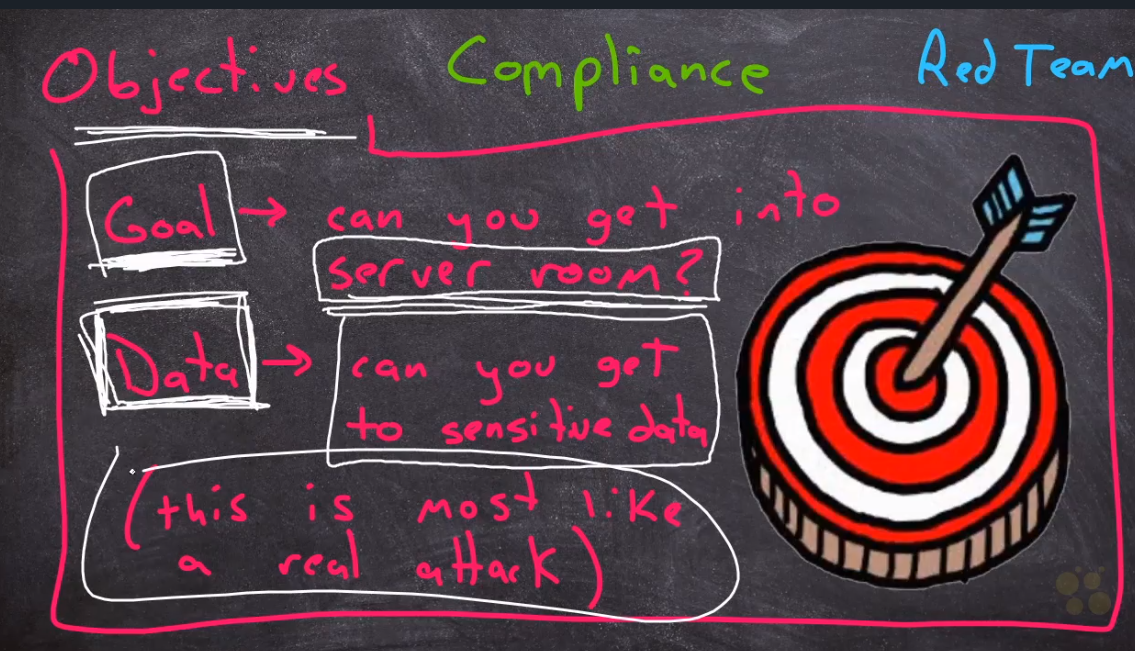 Objectives Compliance Red Team
Goal → can you get into
server room?
Data → can you get
to sensitive data
(this is most like
a real attack)